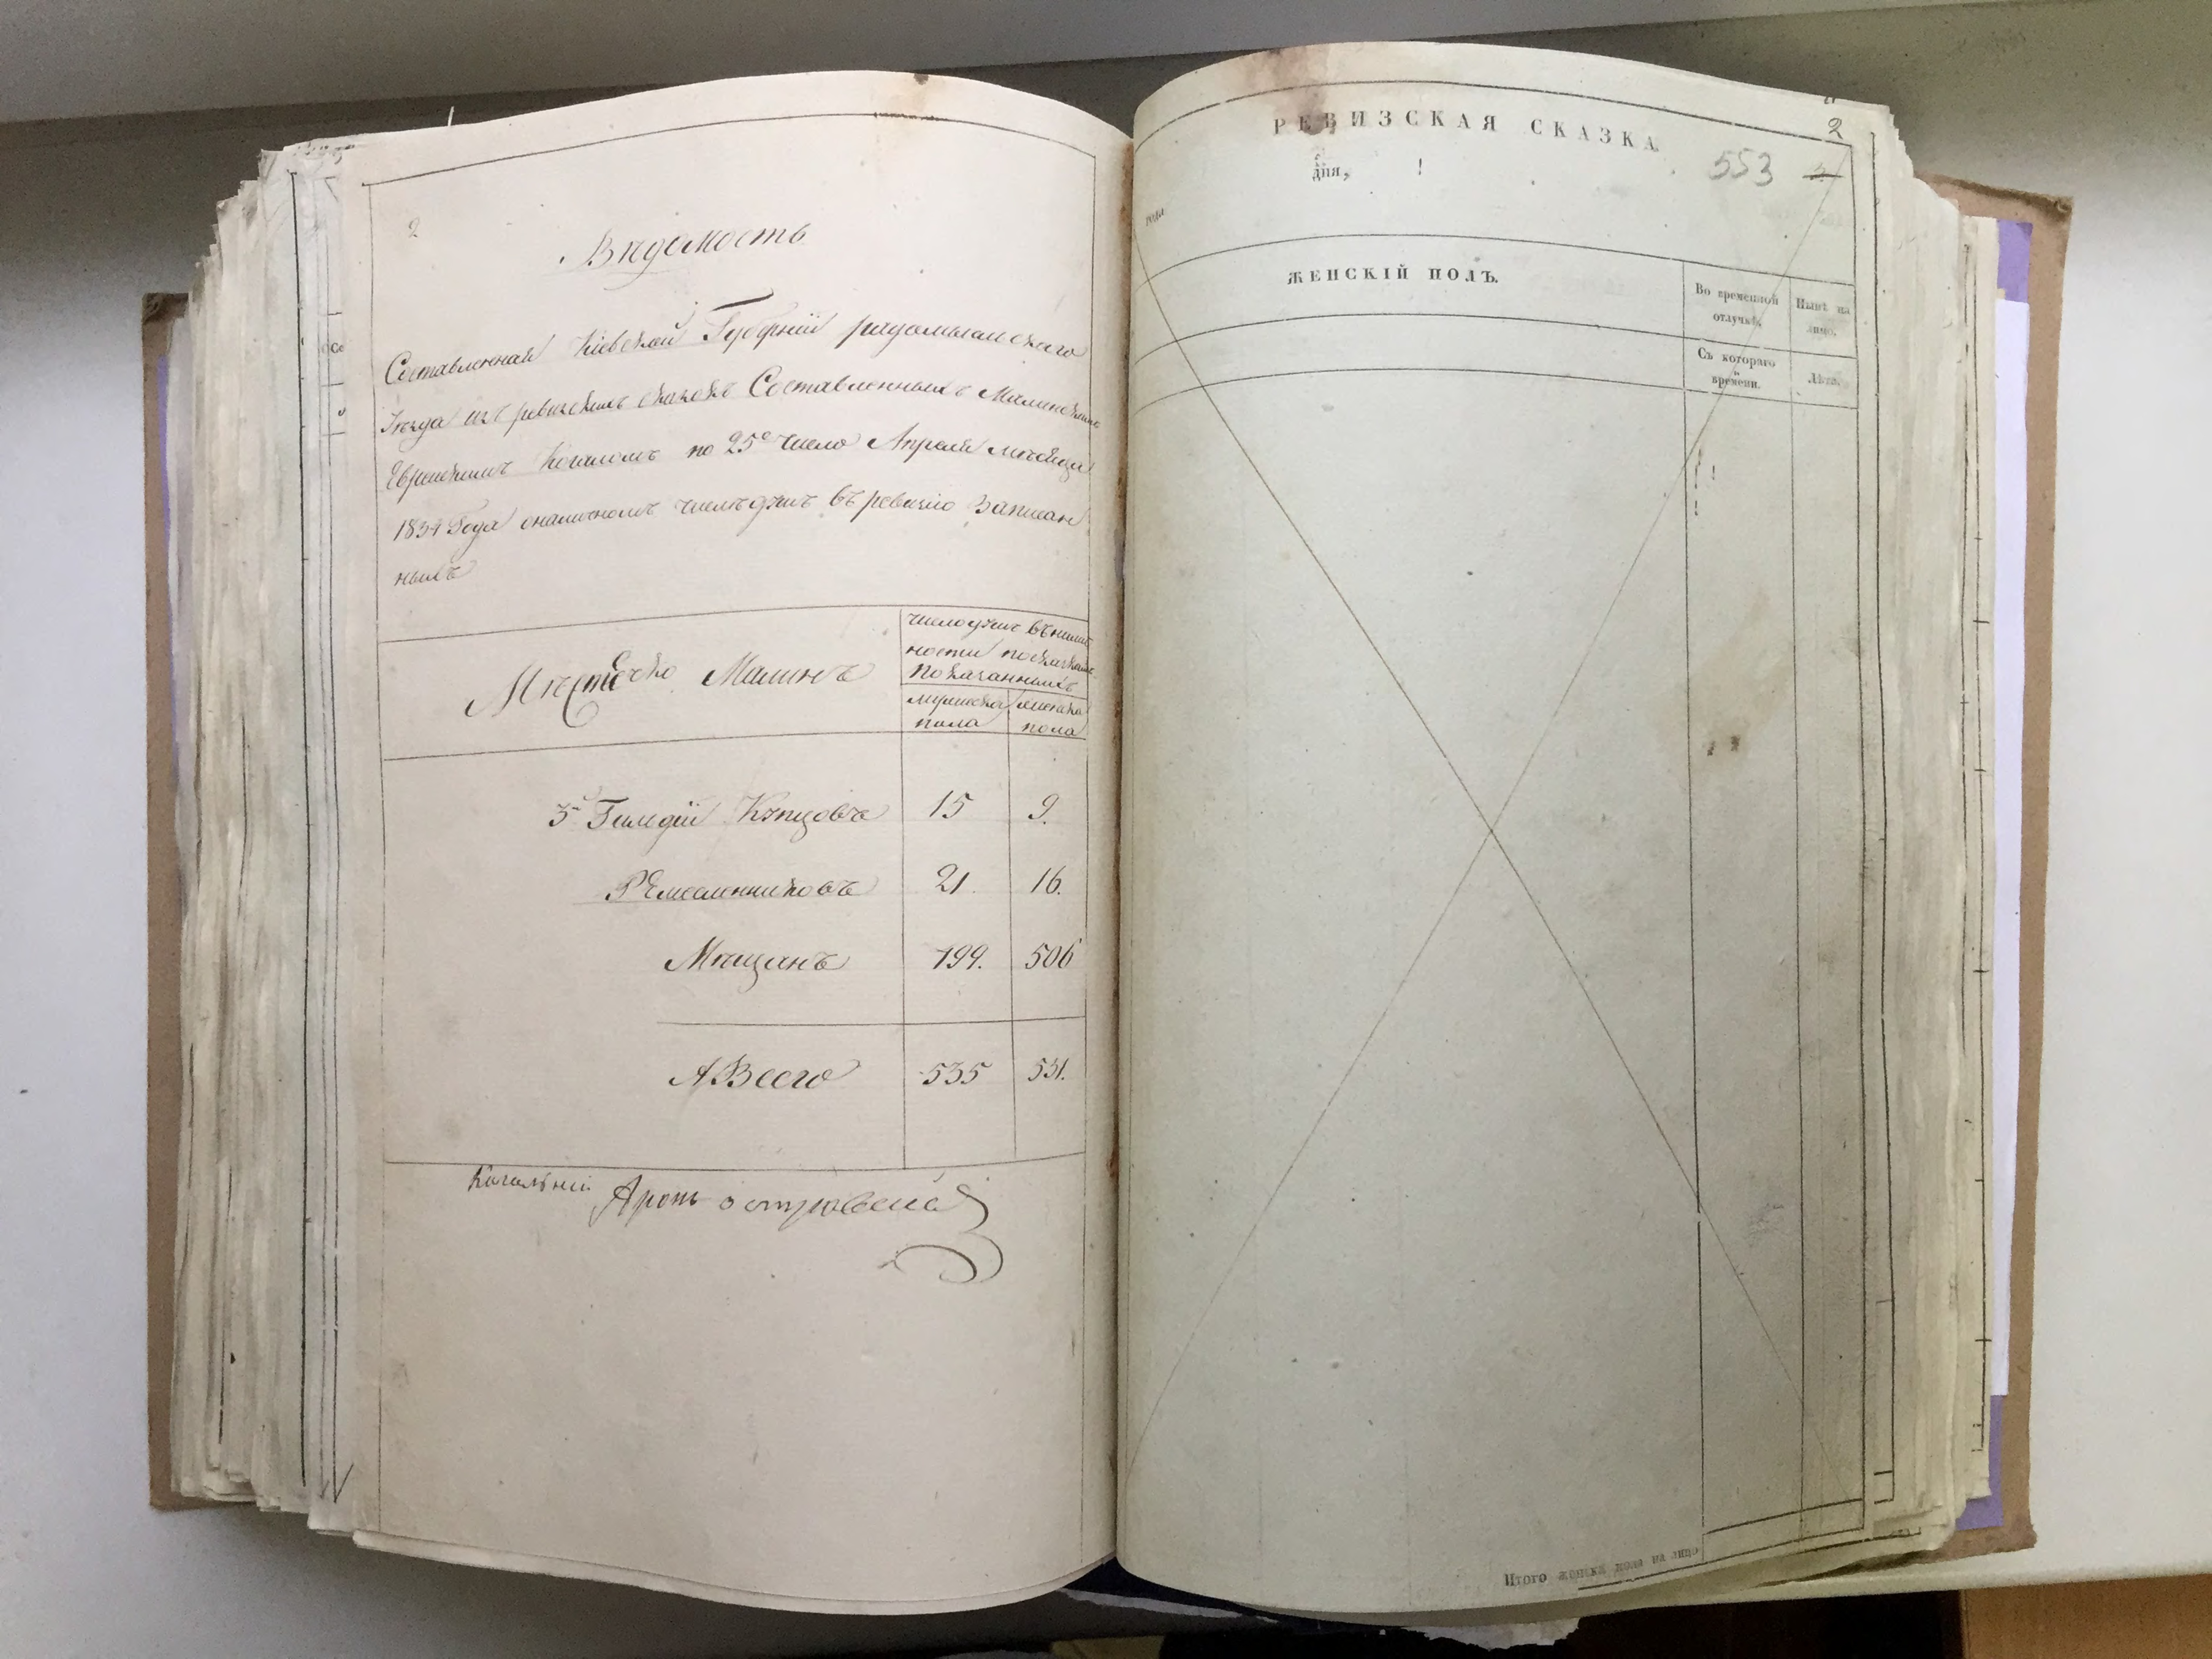 2
Вѣдомость
Составленная Кіевской Губерніи радомысльскаго
Уезда изъ ревизскихъ сказокъ Составленныхъ Малинскимъ
Еврейскимъ Кагаломъ по 25е число Апреля мѣсяца
1834 Года оналичномъ числѣ душъ въ ревизію Записан
ныхъ
Мѣстечко Малинъ
число душъ въналич
ности посказкамъ
показанныхъ
мужеска пола
женска пола
3й Гильдіи Купцовъ 15 9.
РЕмесленниковъ 21. 16.
Мѣщанъ 499. 506
А Всего 535 531.
Кагальній Аронъ островскій
РЕВИЗСКАЯ СКАЗКА
2
дня,
553
года
ЖЕНСКІЙ ПОЛЪ.
Во временной
отлучкѣ,
Нынѣ на
лицо.
Съ котораго
времени.
Лѣта.
Итого женска пола на лицо